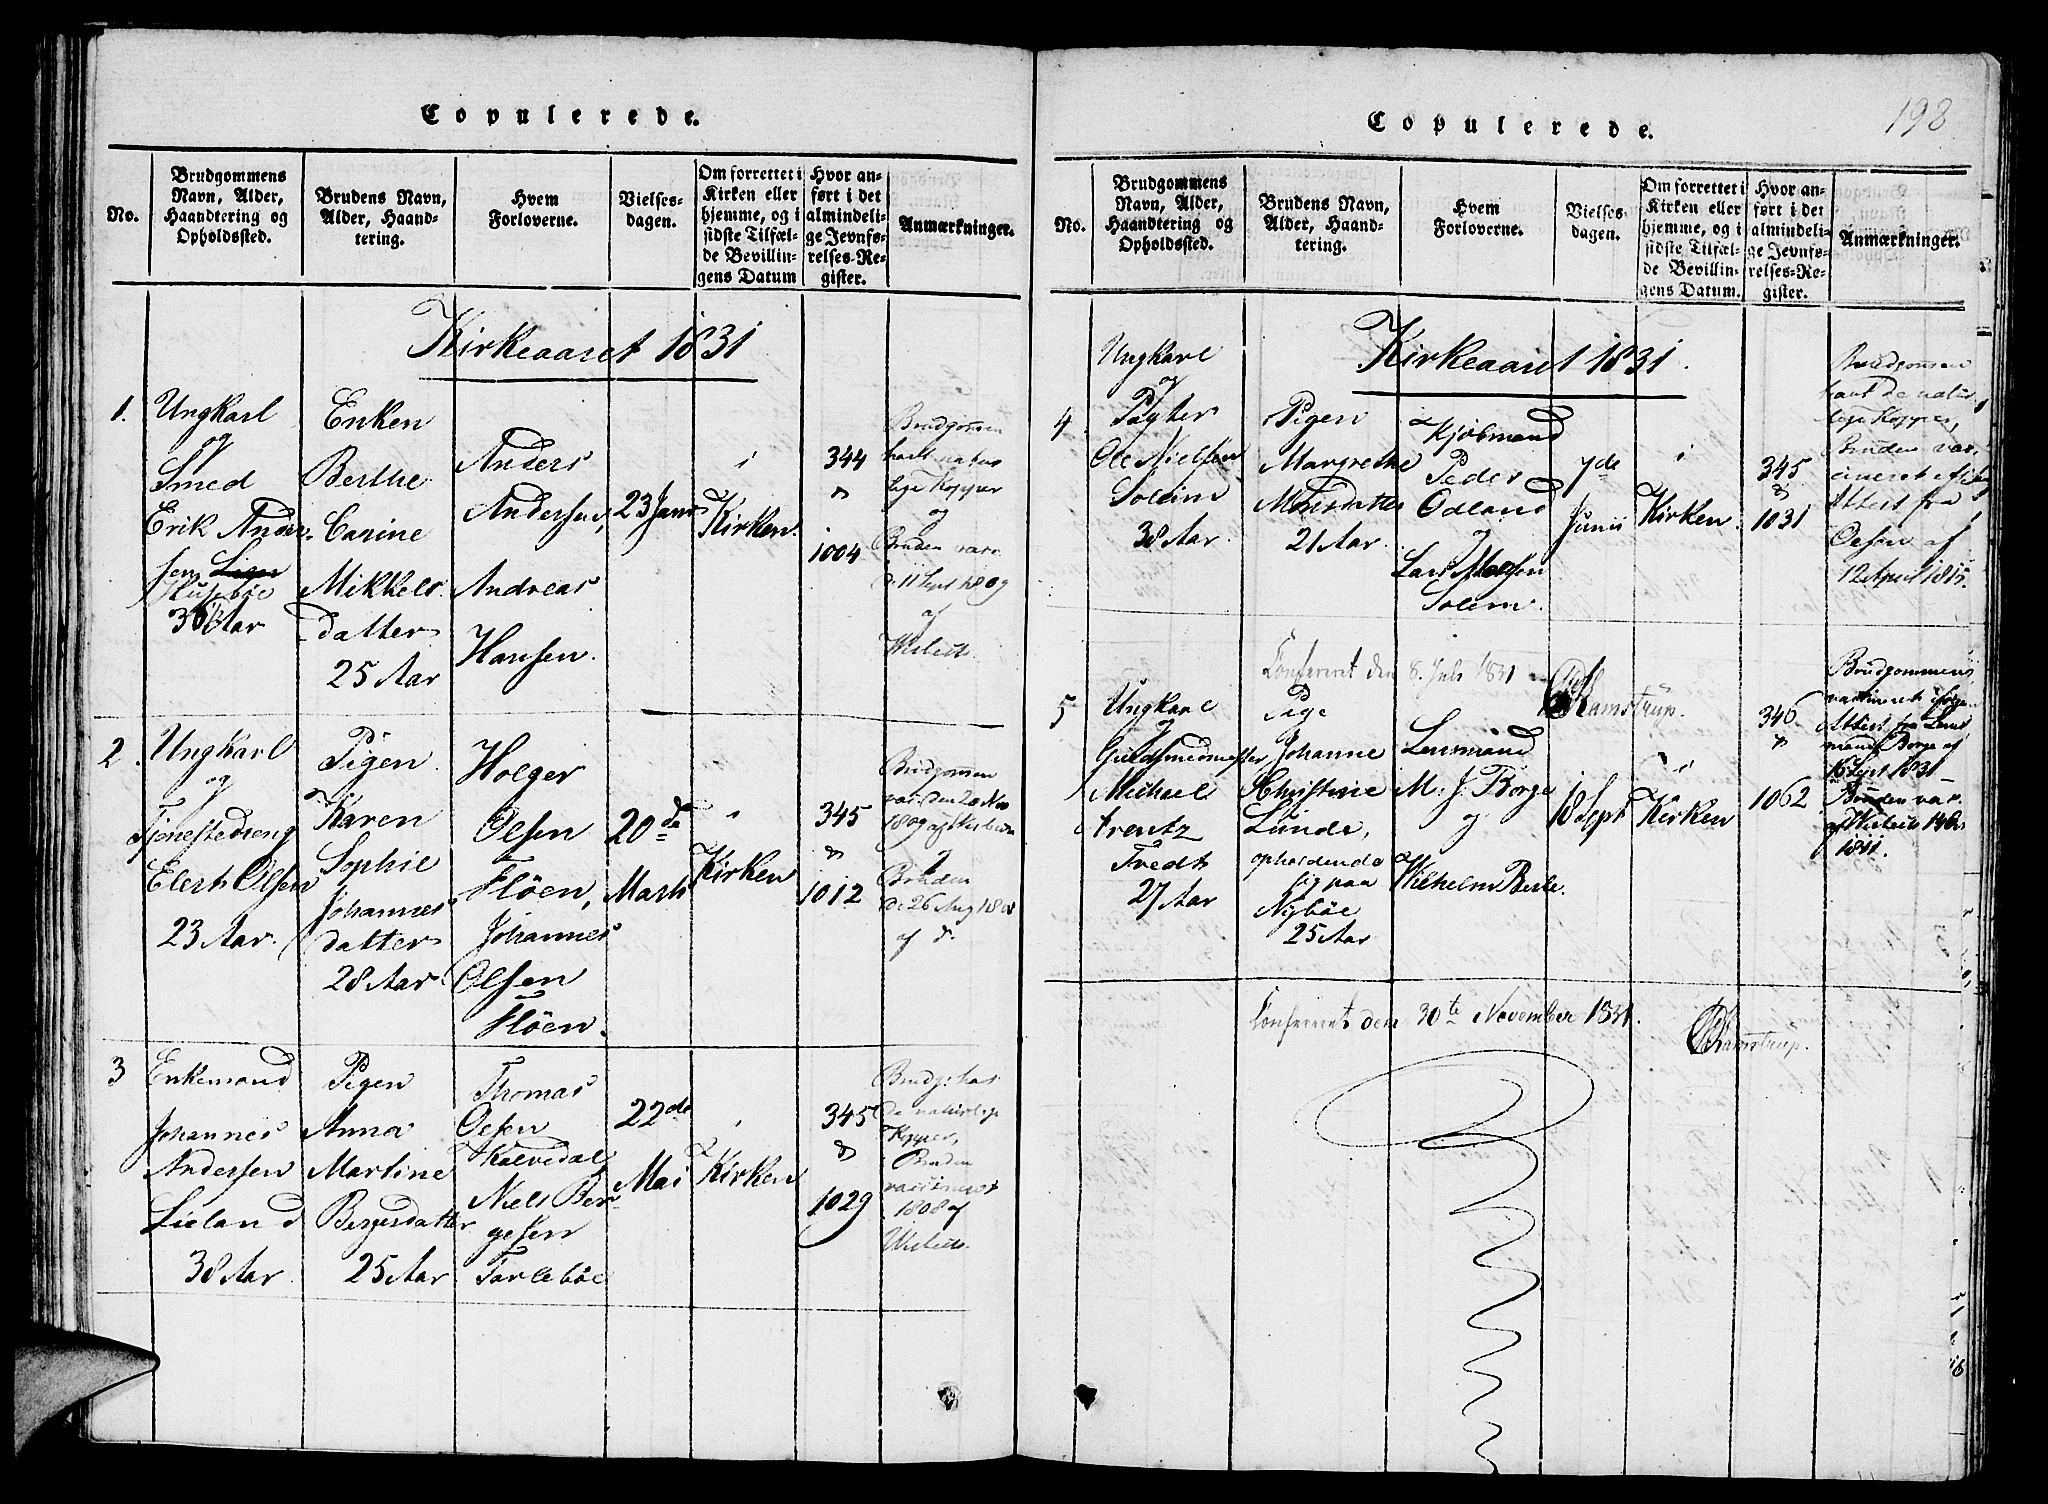 Copulerede.
No.
Brudgommens
Navn, Alder,
Haandtering og
Opholdssted.
Brudens Navn,
Alder, Haand-
tering.
Hvem
Forloverne.
Vielses-
dagen.
Om forrettet i
Kirken eller
hjemme, og i
sidste Tilfæl-
de Bevillin-
gens Datum
Hvor an-
ført i det
almindeli-
ge Jevnfø-
relses-Re-
gister.
Anmærkninger.
Kirkeaaret 1831
1.
Ungkarl
og
Smed
Erik Ander-
sen
Husebøe
Aar
Enken
Berthe
Carine
Mikkels
datter
25 Aar
Anders
Andersen,
Andreas
Hansen.
23 Janr
i
Kirken.
344
&
1004
Brudgomen
havt natur
lige Kopper
og
Bruden vacc.
d. 11 Sept 1809
af
2.
Ungkarl
og
Tjenestedreng
Elert Olsen
23 Aar.
Pigen
Karen
Sophie
Johannes
datter
28 Aar
Holger
Olsen
Fløen,
Johannes
Olsen
Fløen.
20de
Marts
i
Kirken
345
&
1012
Brudgomen
vac. den 20 Nov
1809 af
og
Bruden
d. 26 Aug
af d.
3
Enkemand
Johannes
Andersen
Lieland
38 Aar
Pigen
Anna
Martine
Bergesdatter
25 Aar
Thomas
Olsen
Kalvedal,
Niels Ber-
gesen
Tarlebøe
22de
Mai
i
Kirken
345
&
1029
Brudg. har
de naturlige
Kopper,
Bruden
vaccineret
1808 af
Copulerede.
198
No.
Brudgommens
Navn, Alder,
Haandtering og
Opholdssted.
Brudens Navn,
Alder, Haand-
tering.
Hvem
Forloverne.
Vielses-
dagen.
Om forrettet i
Kirken eller
hjemme, og i
sidste Tilfæl-
de Bevillin-
gens Datum.
Hvor an-
ført i det
almindeli-
ge Jevnfø-
relses-Re-
gister.
Anmærkninger.
Kirkeaaret 1831.
4
Ungkarl
og
Pagter
Ole Nielsen
Solem
38 Aar.
Pigen
Margrethe
Monsdatter
21 Aar.
Kjøbmand
Peder
Odland
og
Lars
Solem.
7de
Junii
i
Kirken.
345
&
1031
Brudgomen
havt de natur
lige Kopper,
Bruden vac-
cineret
Attest fra
af
12 April
Confereret den 8. Juli 1831
Ramstrup.
5
Ungkarl
og
Guldsmedmester
Michael
Arentz
Fredt
27 Aar
Pige
Johanne
Christine
Lunde,
opholdende
sig paa
Nybøe
25 Aar
Lensmand
M. J. Borge
og
Wilhelm Berle.
18 Sept
i
Kirken
346
&
1062
Brudgommens
vaccineret ifølge
Attest fra Lens
mand Borge af
15 Sept 1831
Bruden vac.
1811.
Confereret den 30te November 1831.
Ramstrup.